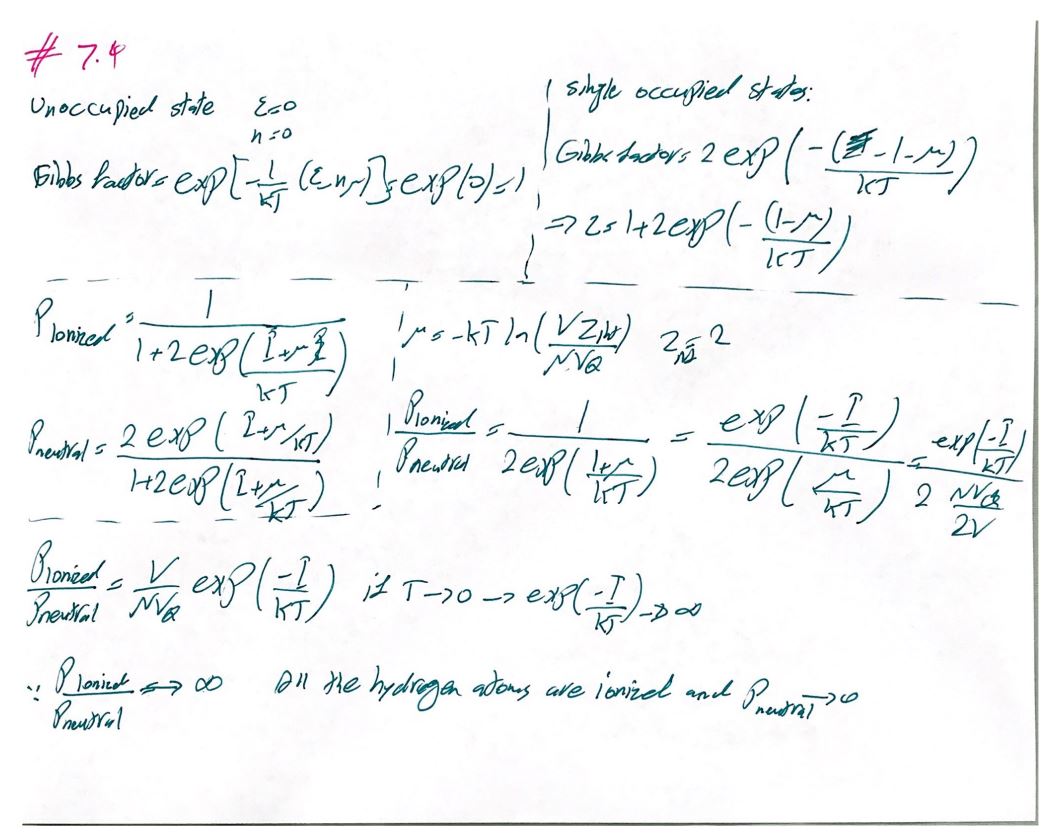 # 7.4
Unoccupied state ε=0
n=0
Gibbs factor = exp[-1/kT (ε nμ)] = exp(0)=1
single occupied states:
Gibbs factor = 2 exp(-(-I-μ)/kT)
=> Z = 1+2exp(-(I-μ)/kT)
P ionized = 1/(1+2exp((I+μ)/kT))
μ = -kT ln(V Zint/NVQ) Z = 2
P neutral = 2exp(I+μ/kT)/(1+2exp(I+μ/kT))
P ionized/P neutral = 1/(2exp((I+μ)/kT)) = exp(-I/kT)/(2exp(μ/kT)) = exp(-I/kT)/(2 NVQ/2V)
P ionized/P neutral = V/NVQ exp(-I/kT) if T->0 -> exp(-I/kT) -> ∞
∵ P ionized/P neutral => ∞ All the hydrogen atoms are ionized and P neutral -> 0